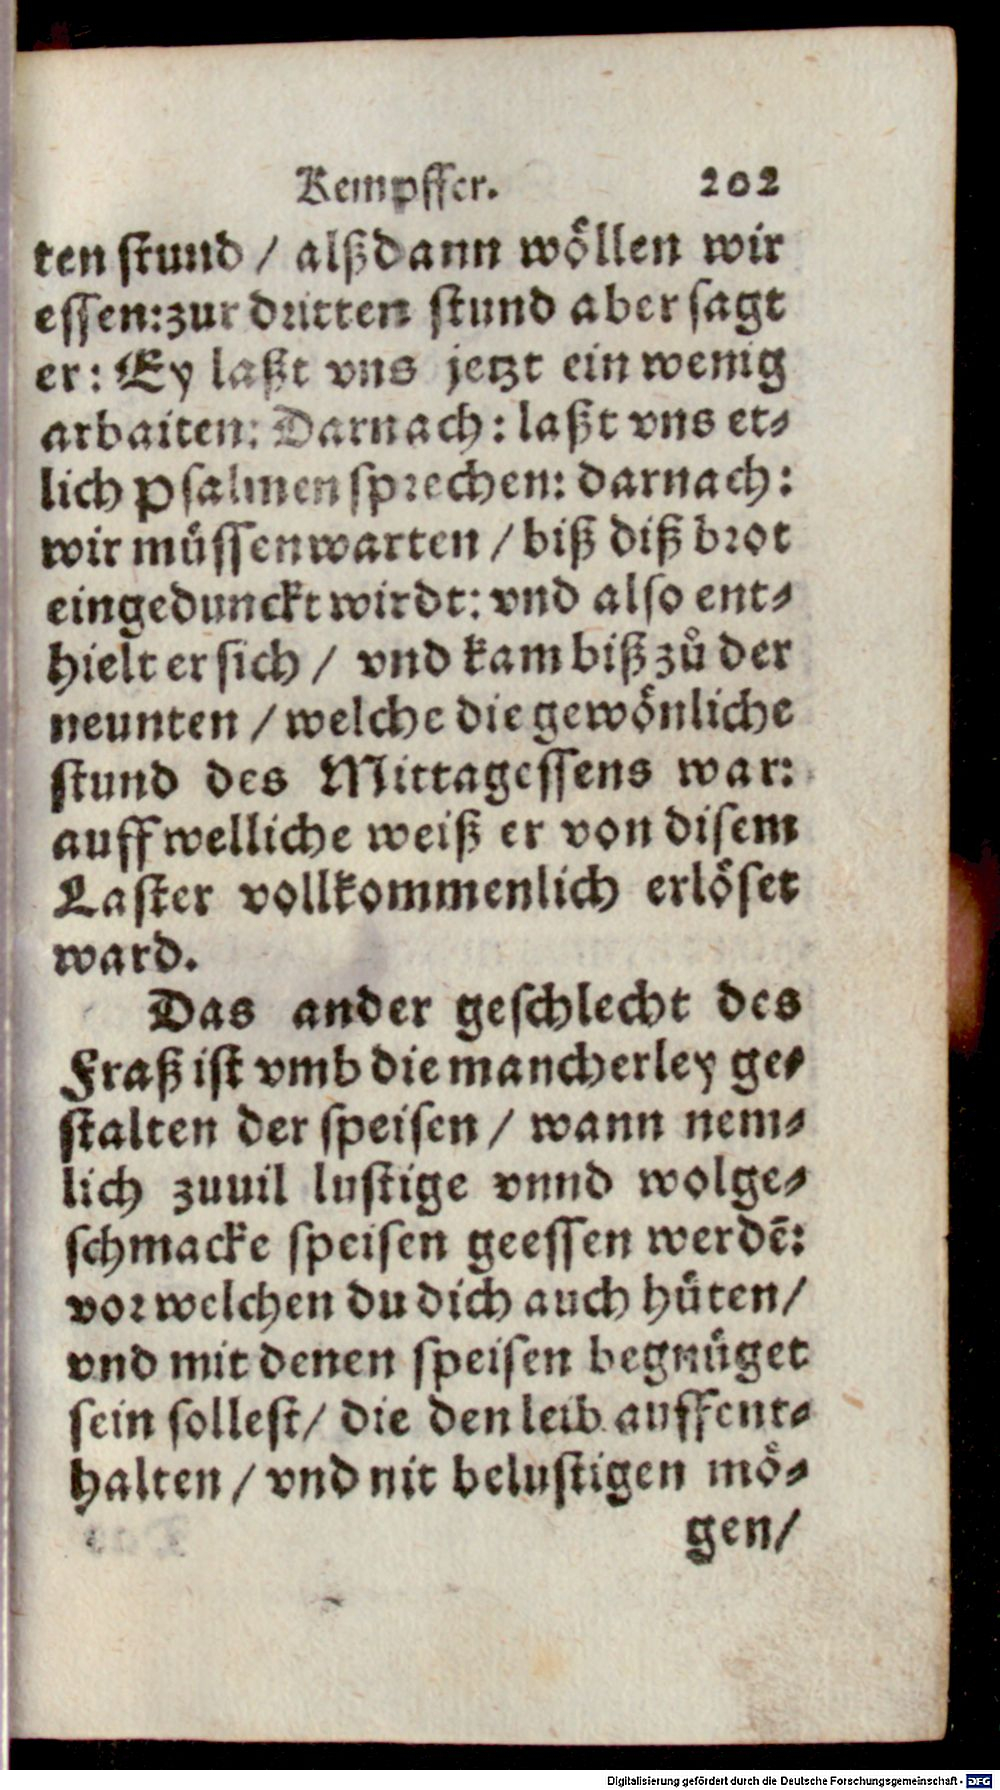 Kempffer. 202
ten stund / alßdann wöllen wir
essen: zur dritten stund aber sagt
er: Ey laßt vns jetzt ein wenig
arbaiten: Darnach: laßt vns et-
lich Psalmen sprechen: darnach:
wir müssen warten / biß diß brot
eingedunckt wirdt: vnd also ent-
hielt er sich / vnd kam biß zů der
neunten / welche die gewönliche
stund des Mittagessens war:
auff welliche weiß er von disem
Laster vollkommenlich erlöset
ward.
Das ander geschlecht des
Fraß ist vmb die mancherley ge-
stalten der speisen / wann nem-
lich zuuil lustige vnnd wolge-
schmacke speisen geessen werdē:
vor welchen du dich auch hüten /
vnd mit denen speisen begnüget
sein sollest / die den leib auffent-
halten / vnd nit belustigen mö-
gen /
Digitalisierung gefördert durch die Deutsche Forschungsgemeinschaft - DFG